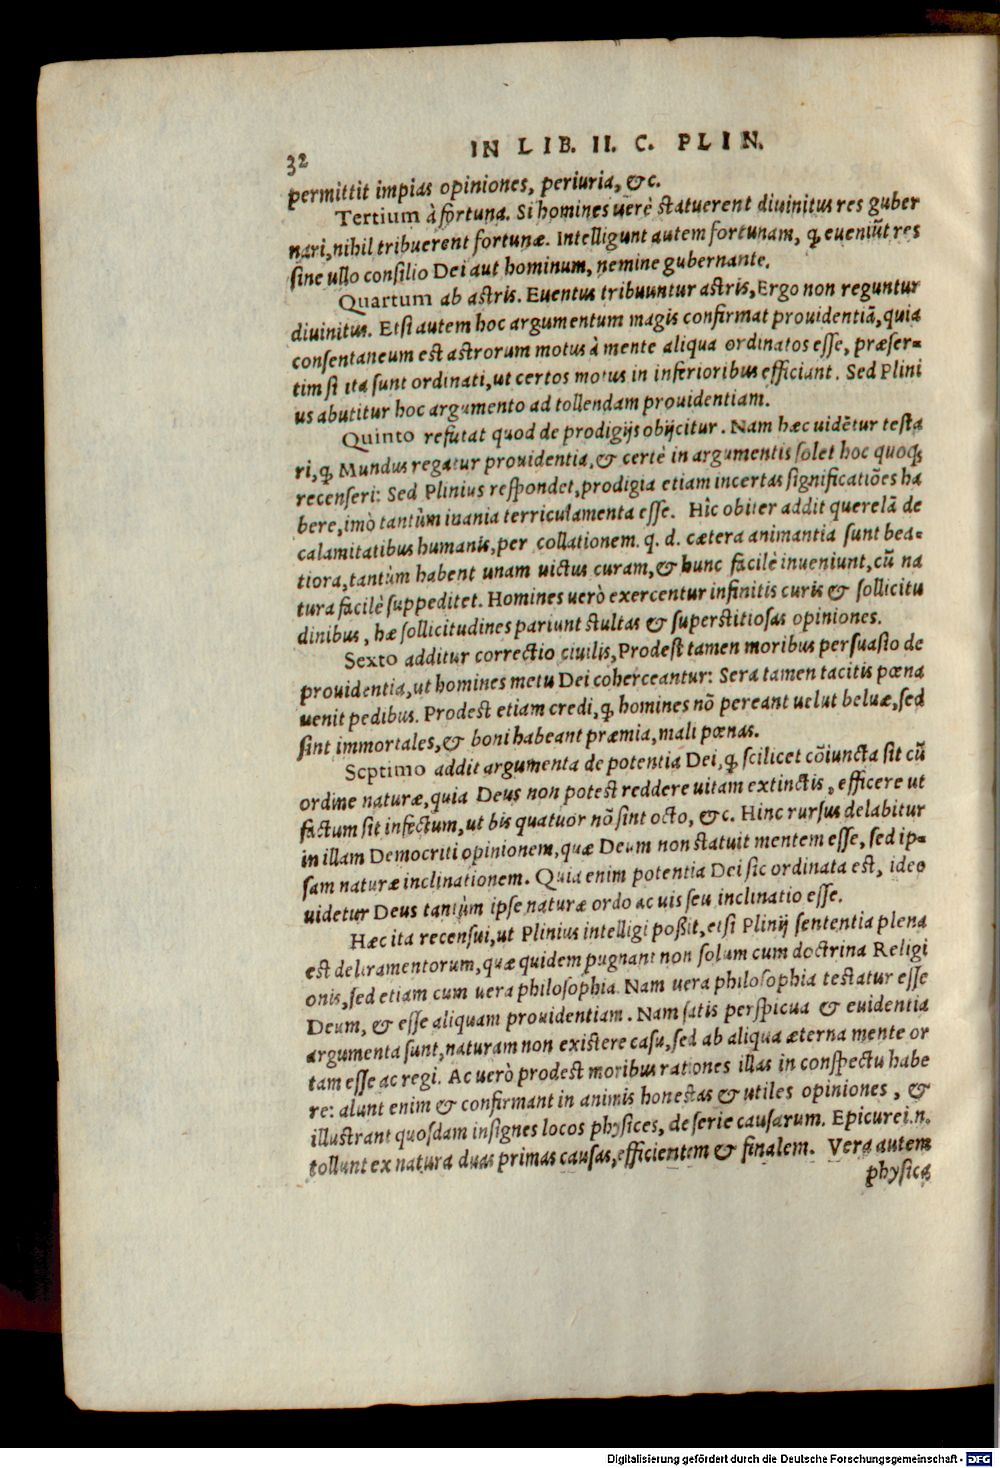 32
IN LIB. II. C. PLIN.
permittit impias opiniones, periuria, &c.
Tertium à fortuna. Si homines uerè statuerent diuinitus res guber
nari, nihil tribuerent fortunæ. Intelligunt autem fortunam, ꝙ eueniũt res
sine ullo consilio Dei aut hominum, nemine gubernante.
Quartum ab astris. Euentus tribuuntur astris, Ergo non reguntur
diuinitus. Etsi autem hoc argumentum magis confirmat prouidentiã, quia
consentaneum est astrorum motus à mente aliqua ordinatos esse, præser-
tim si ita sunt ordinati, ut certos motus in inferioribus efficiant. Sed Plini
us abutitur hoc argumento ad tollendam prouidentiam.
Quinto refutat quod de prodigijs obijcitur. Nam hæc uidẽtur testa
ri, ꝙ Mundus regatur prouidentia, & certè in argumentis solet hoc quoqꝫ
recenseri: Sed Plinius respondet, prodigia etiam incertas significatiões ha
bere, imò tantùm inania terriculamenta esse. Hîc obiter addit querelã de
calamitatibus humanis, per collationem. q. d. cætera animantia sunt bea-
tiora, tantùm habent unam uictus curam, & hunc facilè inueniunt, cũ na
tura facilè suppeditet. Homines uerò exercentur infinitis curis & sollicitu
dinibus, hæ sollicitudines pariunt stultas & superstitiosas opiniones.
Sexto additur correctio ciuilis, Prodest tamen moribus persuasio de
prouidentia, ut homines metu Dei coherceantur: Sera tamen tacitis pœna
uenit pedibus. Prodest etiam credi, ꝙ homines nõ pereant uelut beluæ, sed
sint immortales, & boni habeant præmia, mali pœnas.
Septimo addit argumenta de potentia Dei, ꝙ scilicet cõiuncta sit cũ
ordine naturæ, quia Deus non potest reddere uitam extinctis, efficere ut
factum sit infectum, ut bis quatuor nõ sint octo, &c. Hinc rursus delabitur
in illam Democriti opinionem, quæ Deum non statuit mentem esse, sed ip-
sam naturæ inclinationem. Quia enim potentia Dei sic ordinata est, ideo
uidetur Deus tantùm ipse naturæ ordo ac uis seu inclinatio esse.
Hæc ita recensui, ut Plinius intelligi poßit, etsi Plinij sententia plena
est deliramentorum, quæ quidem pugnant non solum cum doctrina Religi
onis, sed etiam cum uera philosophia. Nam uera philosophia testatur esse
Deum, & esse aliquam prouidentiam. Nam satis perspicua & euidentia
argumenta sunt, naturam non existere casu, sed ab aliqua æterna mente or
tam esse ac regi. Ac uerò prodest moribus rationes illas in conspectu habe
re: alunt enim & confirmant in animis honestas & utiles opiniones, &
illustrant quosdam insignes locos physices, de serie causarum. Epicurei.n.
tollunt ex natura duas primas causas, efficientem & finalem. Vera autem
physica
Digitalisierung gefördert durch die Deutsche Forschungsgemeinschaft - DFG